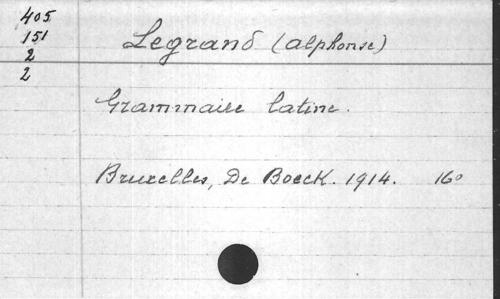 405
151
2
2
Legrand (Alphonse)
Grammaire latine.
Bruxelles, De Boeck. 1914. 16°